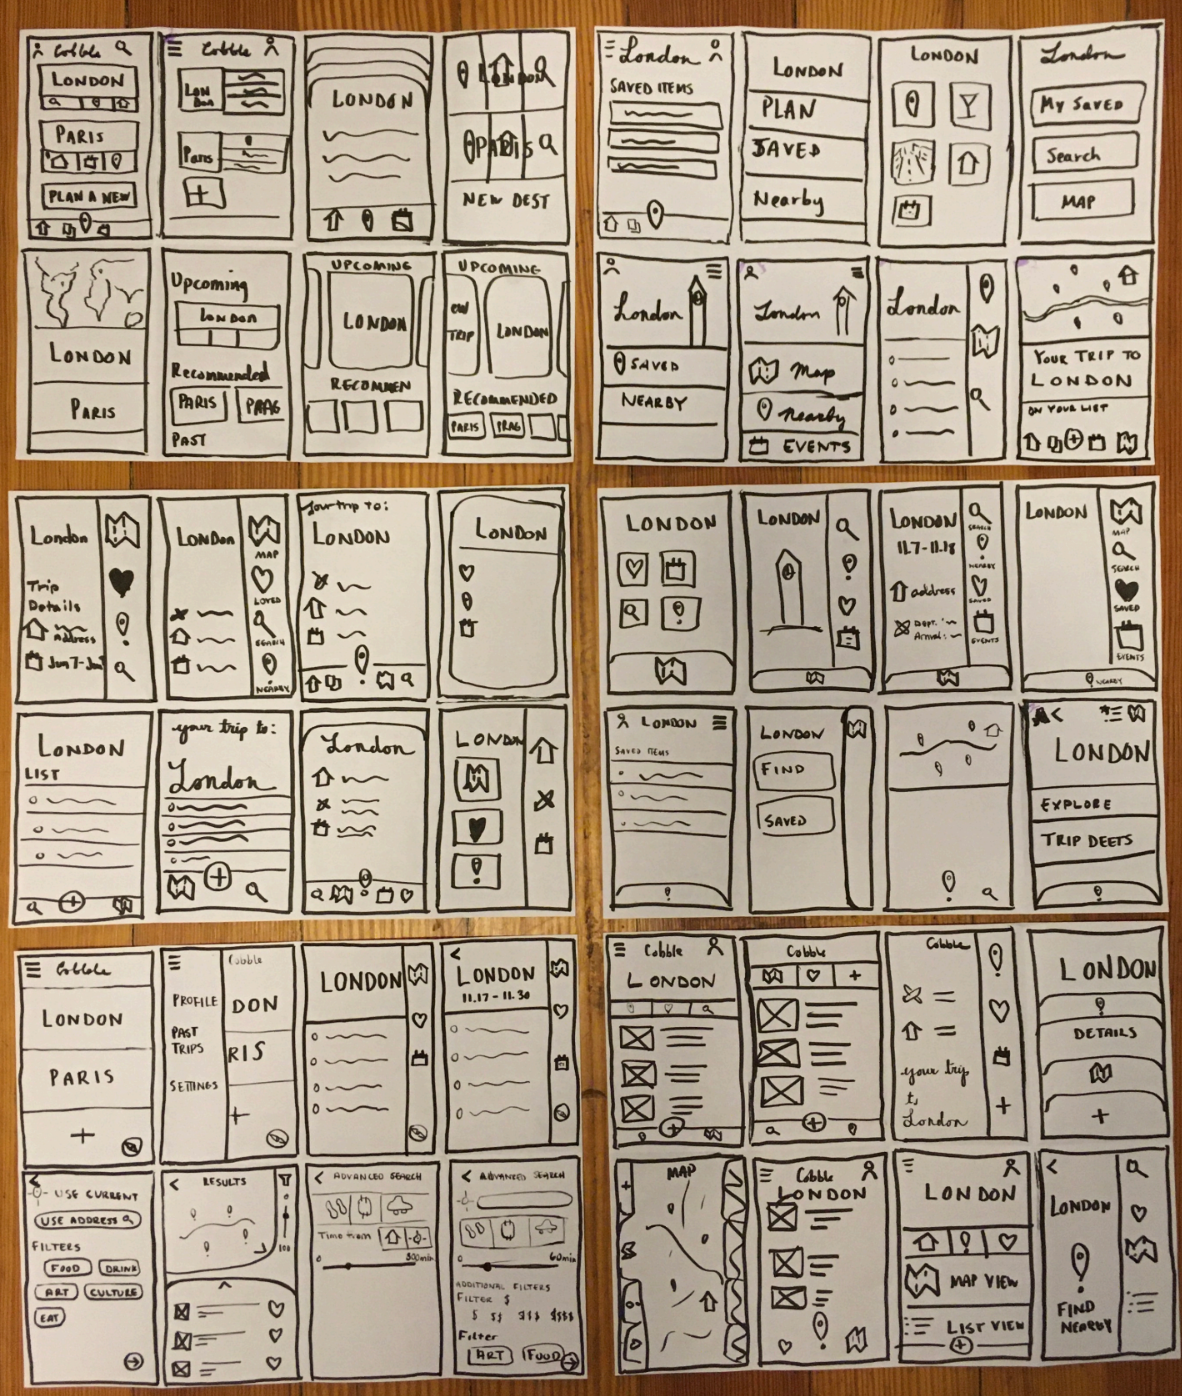 Cobble
LONDON
PARIS
PLAN A NEW
Cobble
Lon
don
Paris
LONDON
LONDON
PARIS
NEW DEST
LONDON
PARIS
Upcoming
London
Recommended
PARIS
PRAG
PAST
UPCOMING
LONDON
RECOMMEN
UPCOMING
EW
TRIP
LONDON
RECOMMENDED
PARIS
PRAG
London
SAVED ITEMS
LONDON
PLAN
SAVED
Nearby
LONDON
London
My SAVED
Search
MAP
London
SAVED
NEARBY
London
Map
Nearby
EVENTS
London
YOUR TRIP TO
LONDON
ON YOUR LIST
London
Trip
Details
Address
Jun 7-Jun
LONDON
MAP
LOVED
SEARCH
NEARBY
Your trip to:
LONDON
LONDON
LONDON
LIST
your trip to:
London
London
LONDON
LONDON
LONDON
LONDON
11.7-11.18
address
Dept:
Arrival:
SEARCH
NEARBY
SAVED
EVENTS
LONDON
MAP
SEARCH
SAVED
EVENTS
NEARBY
LONDON
SAVED ITEMS
LONDON
FIND
SAVED
LONDON
EXPLORE
TRIP DEETS
Cobble
LONDON
PARIS
Cobble
PROFILE
PAST
TRIPS
SETTINGS
DON
RIS
LONDON
LONDON
11.17-11.30
USE CURRENT
USE ADDRESS
FILTERS
FOOD
DRINK
ART
CULTURE
EAT
RESULTS
ADVANCED SEARCH
Time from
ADVANCED SEARCH
60min
ADDITIONAL FILTERS
FILTER $
$ $$ $$$ $$$$
Filter
ART
FOOD
Cobble
LONDON
Cobble
Cobble
your trip
to
London
LONDON
DETAILS
MAP
Cobble
LONDON
LONDON
MAP VIEW
LIST VIEW
LONDON
FIND
NEARBY